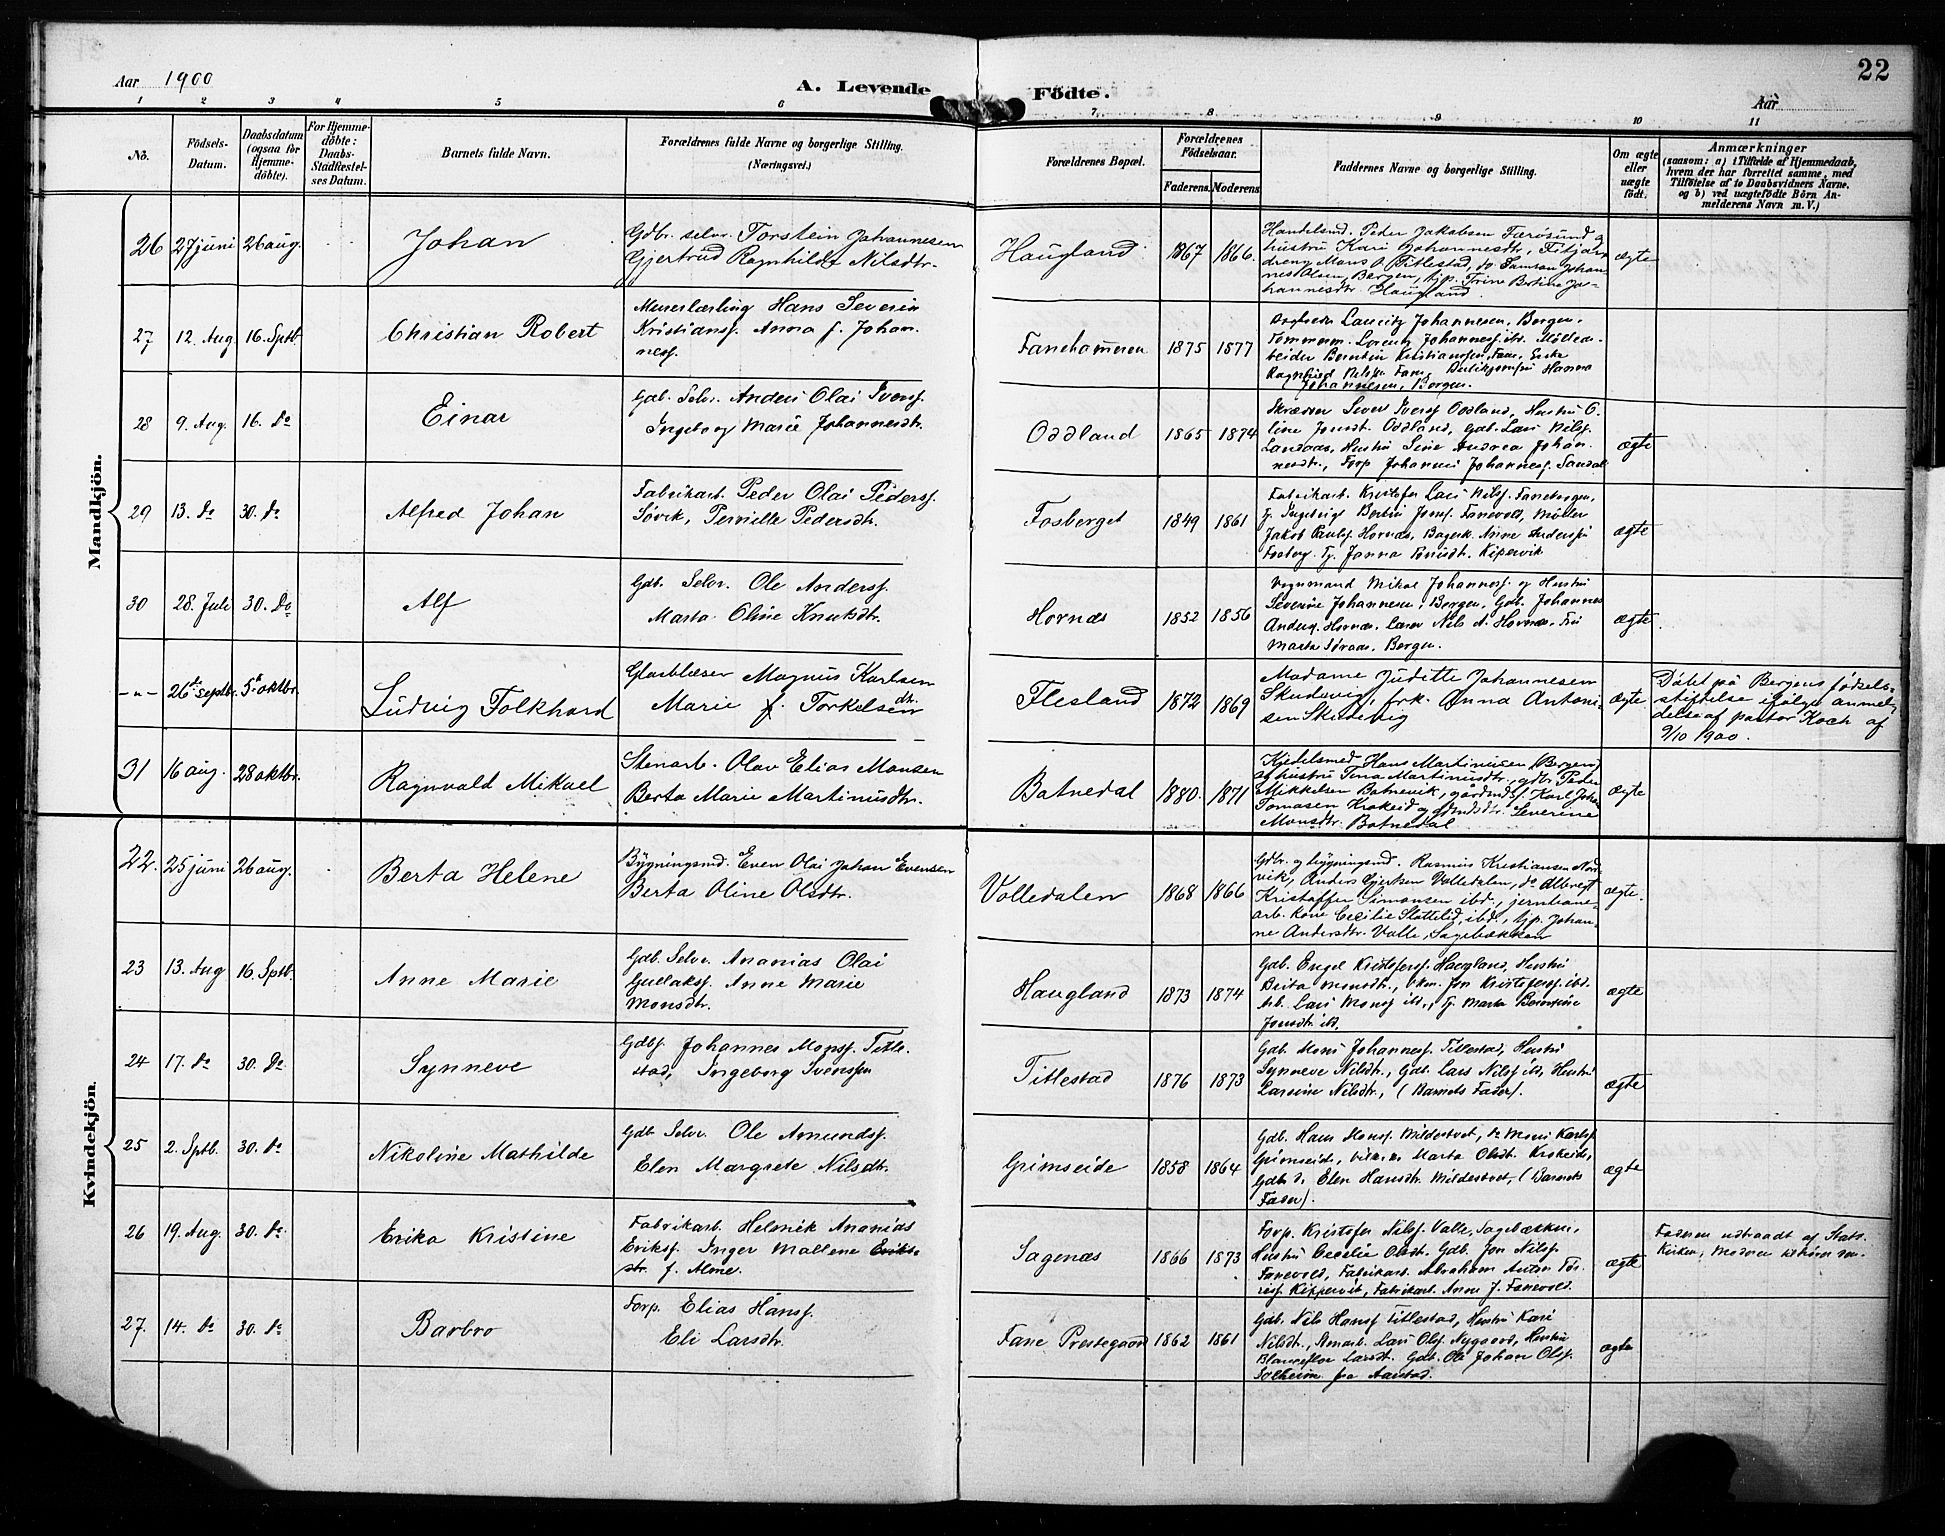 22
Aar 1900
A. Levende Födte.
Aar
1 2 3 4 5 6 7 8 9 10 11
No.
Födsels-
Datum.
Daabsdatum
(ogsaa for
Hjemme-
döbte).
For Hjemme-
döbte:
Daabs-
Stadfæstel-
ses Datum.
Barnets fulde Navn.
Forældrenes fulde Navne og borgerlige Stilling.
(Næringsvei.)
Forældrenes Bopæl.
Forældrenes
Födselsaar.
Faderens. Moderens.
Faddernes Navne og borgerlige Stilling.
Om ægte
eller
uægte
födt.
Anmærkninger
(saasom: a) i Tilfælde af Hjemmedaab,
hvem der har forrettet samme, med
Tilföielse af to Daabsvidners Navne.
og b) ved uægtefödte Börn An-
melderens Navn m. V.)
Mandkjön.
26 27 juni 26 aug.
Johan
Gdbr. selv. Torstein Johannesen
Gjertrud Ragnhilde Nilsdtr.
Haugland 1867 1866.
Handelsmd. Peder Jakobsen Tærøsund og
hustru Kari Johannesdtr, Fitjar,
dreng Mons O. Titlestad, do Samson Johan-
nes Olsen, Bergen, tjp. Trine Bertine Jo-
hannesdtr. Haugland.
ægte
27 12. Aug. 16. Sptb.
Christian Robert
Murerlærling Hans Severin
Kristiansf. Anna f. Johan-
nesf.
Fanehammeren 1875 1877
Lauritz Johannesen, Bergen,
Tømmerm. Lorentz Johannesf. ibd.
beider Berntin Kristiansen, Fane, Enke
Ragnhild Nilsf. Fane, Butikjomfru Hanna
Johannesen, Bergen.
28 9. Aug. 16. do
Einar
Gdb. Selv. Anders Olai Iversf.
Ingeborg Marie Johannesdtr.
Oddland 1865 1874
Skræder Sever Iversf Oddland, Hustru O-
line Jonsdt. Oddland, Gdb. Lars Nilsf.
Landaas, Hustru Sine Andrea Johan-
nesdtr., Forp Johannes Johannesf. Sandal
ægte
29 13. do 30. do
Alfred Johan
Fabrikarb. Peder Olai Pedersf.
Søvik, Pernille Pedersdtr.
Fosberget 1849 1861
Fabrikarb. Kristofer Lars Nilsf. Fanebergen,
Tj. Ingeborg Bertine Jonsf. Fanevold, Møller
Jakob Paulsf. Hornæs, Bagersk. Anne Andersen
Fosberg. Tj. Janna Knudsdt. Kipervik
ægte
30 28. Juli 30. do
Alf
Gdb. Selv. Ole Andersf.
Marta Oline Knutsdtr.
Hornæs 1852 1856
Vognmand Mikal Johannesf. og Hustru
Severine Johannesen, Bergen, Gdb. Johannes
Andersf. Hornæs, Lærer Nils A. Hornæs. Fru
Marta Søraas, Bergen.
ægte
-„- 26de septbr. 5te oktbr.
Ludvig Folkhard
Glasblæser Magnus Karlsen
Marie f. Torkelsen dtr.
Flesland 1872 1869
Madame Judette Johannesen
Skudevig, frk. Anna Antoni-
sen Skudevig
ægte
Døbt på Bergens fødsels-
stiftelse ifølge anmel-
delse af pastor Koch af
9/10 1900.
31 16 aug. 28 oktbr.
Ragnvald Mikael
Stenarb. Olav Elias Monsen
Berta Marie Martinusdtr.
Botnedal 1880. 1871
Kjedelsmed Hans Martinusen (Bergen)
og hustru Tina Martinusdtr., gdbr. Peder
Mikkelsen Botnevik, gårdmds. Karl Johan
Tomasen Krokeid og gårdmdsdtr. Severine
Monsdtr. Botnedal
ægte
Kvindekjön.
22. 25 juni 26 aug.
Berta Helene
Bygningsmd. Even Olai Johan Evensen
Berta Oline Olsdtr.
Volledalen 1868 1866
Gdbr. og bygningsmd. Rasmus Kristiansen Nord-
vik, Anders Gjertsen Volledalen, do Albregt
Kristoffer Simonsen ibd., jernbane-
arb. kone Cecilie Slottelid, ibd., tjp. Johan-
ne Andersdtr. Valle, Sagebækken
ægte.
23 13. Aug 16. Sptb.
Anne Marie
Gdb. Selv. Ananias Olai
Gullaksf. Anne Marie
Monsdtr.
Haugland 1873 1874
Gdb. Engel Kristofersf. Haugland, Hustru
Brita Monsdtr., Ukm. Jon Kristofersf. ibd.
Arb. Lars Monsf. ibd., Tj. Marta Berentine
Jonsdtr. ibd.
ægte
24 17. do 30. do
Synneve
Gdbf. Johannes Monsf. Title-
stad, Ingeborg Svensen
Titlestad 1876 1873
Gdb. Mons Johannesf. Titlestad, Hustru
Synneve Nilsdtr., Gdb. Lars Nilsf. ibd, Hustru
Larsine Nilsdtr., (Barnets Fader).
ægte
25 2. Sptb. 30. do
Nikoline Mathilde
Gdb. Selv. Ole Amundsf.
Elen Margrete Nilsdtr.
Grimseide 1858 1864
Gdb. Hans Monsf. Mildestvet, do Mons Karlsf.
Grimseide, Marta Olsdt. Krokeide,
Gdb. d. Elen Hansdtr. Mildestvet, (Barnets
Fader).
ægte
26 19. Aug. 30. do
Erika Kristine
Fabrikarb. Helmik Ananias
Eriksf. Inger Mallene Eriks-
dtr. f. Alme.
Sagenæs 1866 1873
Forp. Kristofer Nilsf. Valle, Sagebækken,
Hustru Cecilie Olsdt. Gdb. Jon Nilsf.
Fanevold, Fabrikarb. Abraham Anton Tor-
resf. Kippervik, Fabrikarb. Anna J. Fanevold.
ægte
Faderen udtraadt af Stats-
kirken, Moderen tilhører den.
27. 14. do 30. do
Barbro
Forp. Elias Hansf.
Eli Larsdtr.
Fane Prestegaard 1862 1861
Gdb. Nils Hansf Titlestad, Hustru Kari
Nilsdt., Lars Olsf. Nygaard, Hustru
Blanseflor Larsdt. Gdb. Ole Johan Olsf.
Solheim fra Aarstad.
ægte